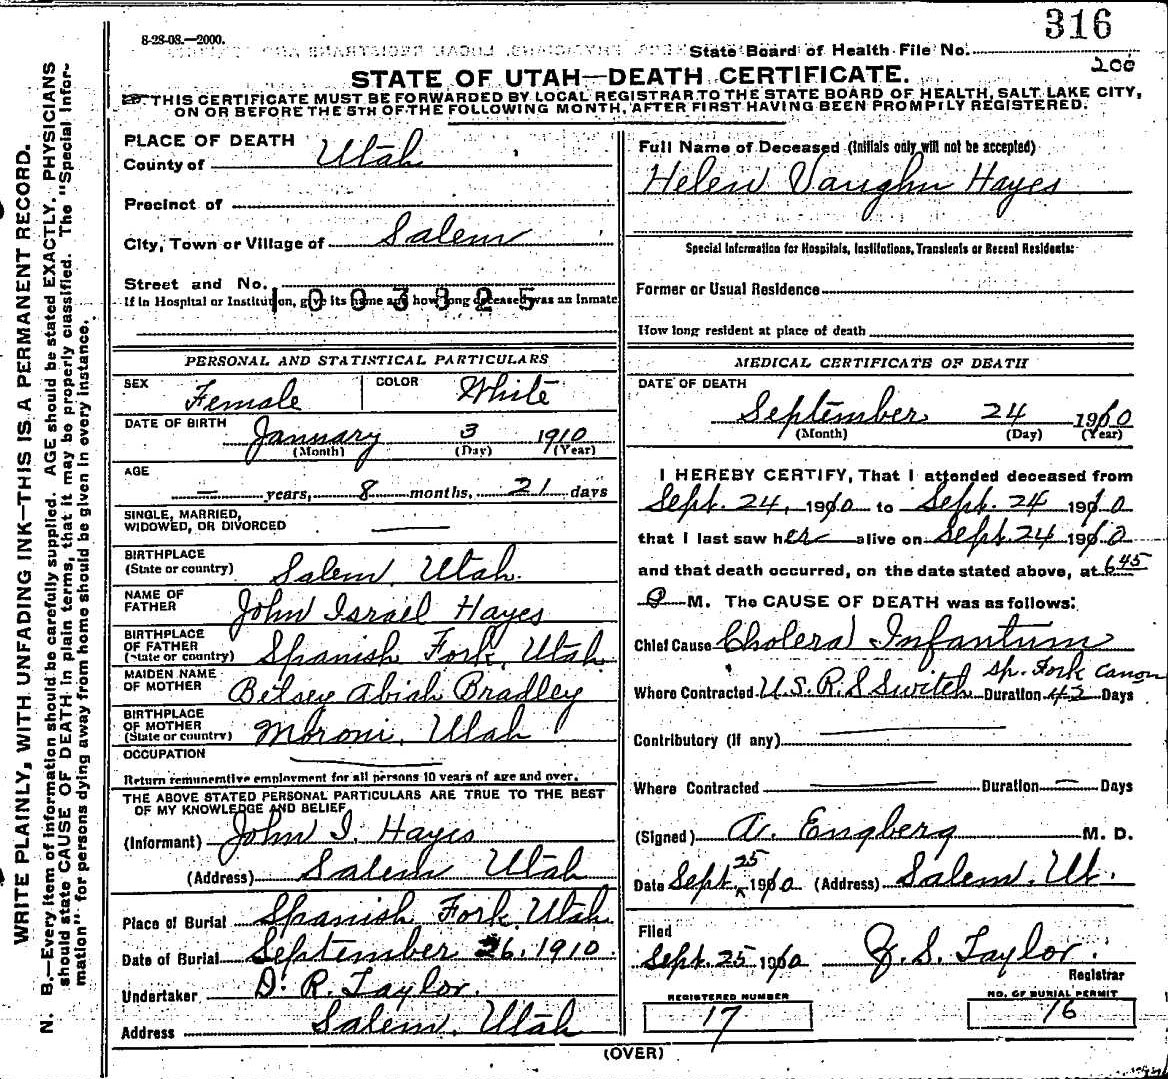 316
8-28-08.—2000.
State Board of Health File No.
200
STATE OF UTAH—DEATH CERTIFICATE.
THIS CERTIFICATE MUST BE FORWARDED BY LOCAL REGISTRAR TO THE STATE BOARD OF HEALTH, SALT LAKE CITY,
ON OR BEFORE THE 5TH OF THE FOLLOWING MONTH, AFTER FIRST HAVING BEEN PROMPTLY REGISTERED.
WRITE PLAINLY, WITH UNFADING INK—THIS IS A PERMANENT RECORD.
N. B.—Every item of information should be carefully supplied. AGE should be stated EXACTLY. PHYSICIANS
should state CAUSE OF DEATH in plain terms, that it may be properly classified. The "Special Infor-
mation" for persons dying away from home should be given in every instance.
PLACE OF DEATH
County of Utah
Precinct of
City, Town or Village of Salem
Street and No.
1003825
If in Hospital or Institution, give its name and how long deceased was an Inmate
PERSONAL AND STATISTICAL PARTICULARS
SEX Female COLOR White
DATE OF BIRTH January 3 1910
(Month) (Day) (Year)
AGE
— years, 8 months, 21 days
SINGLE, MARRIED,
WIDOWED, OR DIVORCED —
BIRTHPLACE
(State or country) Salem, Utah.
NAME OF
FATHER John Israel Hayes
BIRTHPLACE
OF FATHER
(State or country) Spanish Fork, Utah
MAIDEN NAME
OF MOTHER Betsey Abiah Bradley
BIRTHPLACE
OF MOTHER
(State or country) Moroni, Utah
OCCUPATION —
Return remunerative employment for all persons 10 years of age and over.
THE ABOVE STATED PERSONAL PARTICULARS ARE TRUE TO THE BEST
OF MY KNOWLEDGE AND BELIEF,
(Informant) John I. Hayes
(Address) Salem Utah
Place of Burial Spanish Fork, Utah
Date of Burial September 26, 1910.
Undertaker D. R. Taylor.
Address Salem, Utah
Full Name of Deceased (Initials only will not be accepted)
Helen Vaughn Hayes
Special Information for Hospitals, Institutions, Transients or Recent Residents:
Former or Usual Residence
How long resident at place of death
MEDICAL CERTIFICATE OF DEATH
DATE OF DEATH
September 24 1910
(Month) (Day) (Year)
I HEREBY CERTIFY, That I attended deceased from
Sept. 24, 1910 to Sept. 24 1910
that I last saw her alive on Sept. 24 1910
and that death occurred, on the date stated above, at 6 45
P M. The CAUSE OF DEATH was as follows:
Chief Cause Cholera Infantum
Where Contracted U.S.R.S Switch Sp. Fork Canon Duration 42 Days
Contributory (if any) —
Where Contracted — Duration — Days
(Signed) A. Engberg M. D.
Date Sept 25 1910 (Address) Salem, Ut.
Filed
Sept. 25 1910 J. S. Taylor.
Registrar
REGISTERED NUMBER
17
NO. OF BURIAL PERMIT
16
(OVER)